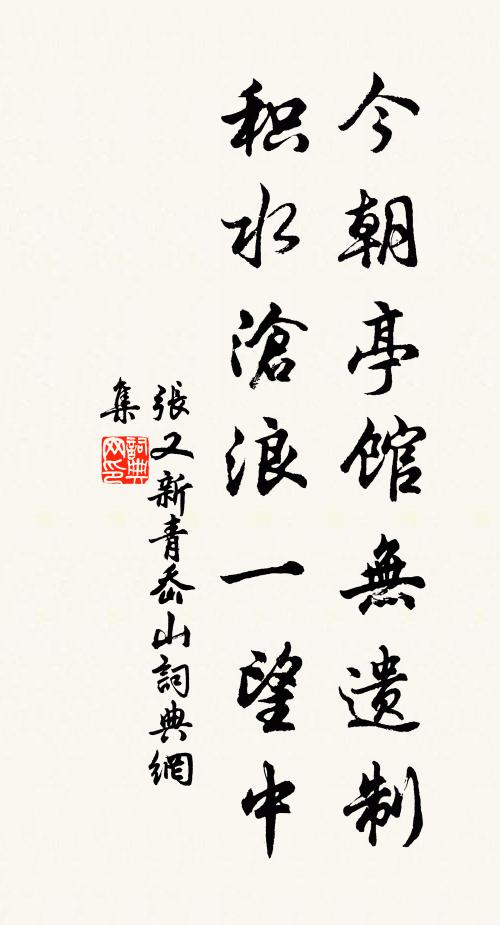 今朝亭馆無遗制
积水滄浪一望中
張又新青岙山詞典網
集
詞典网印